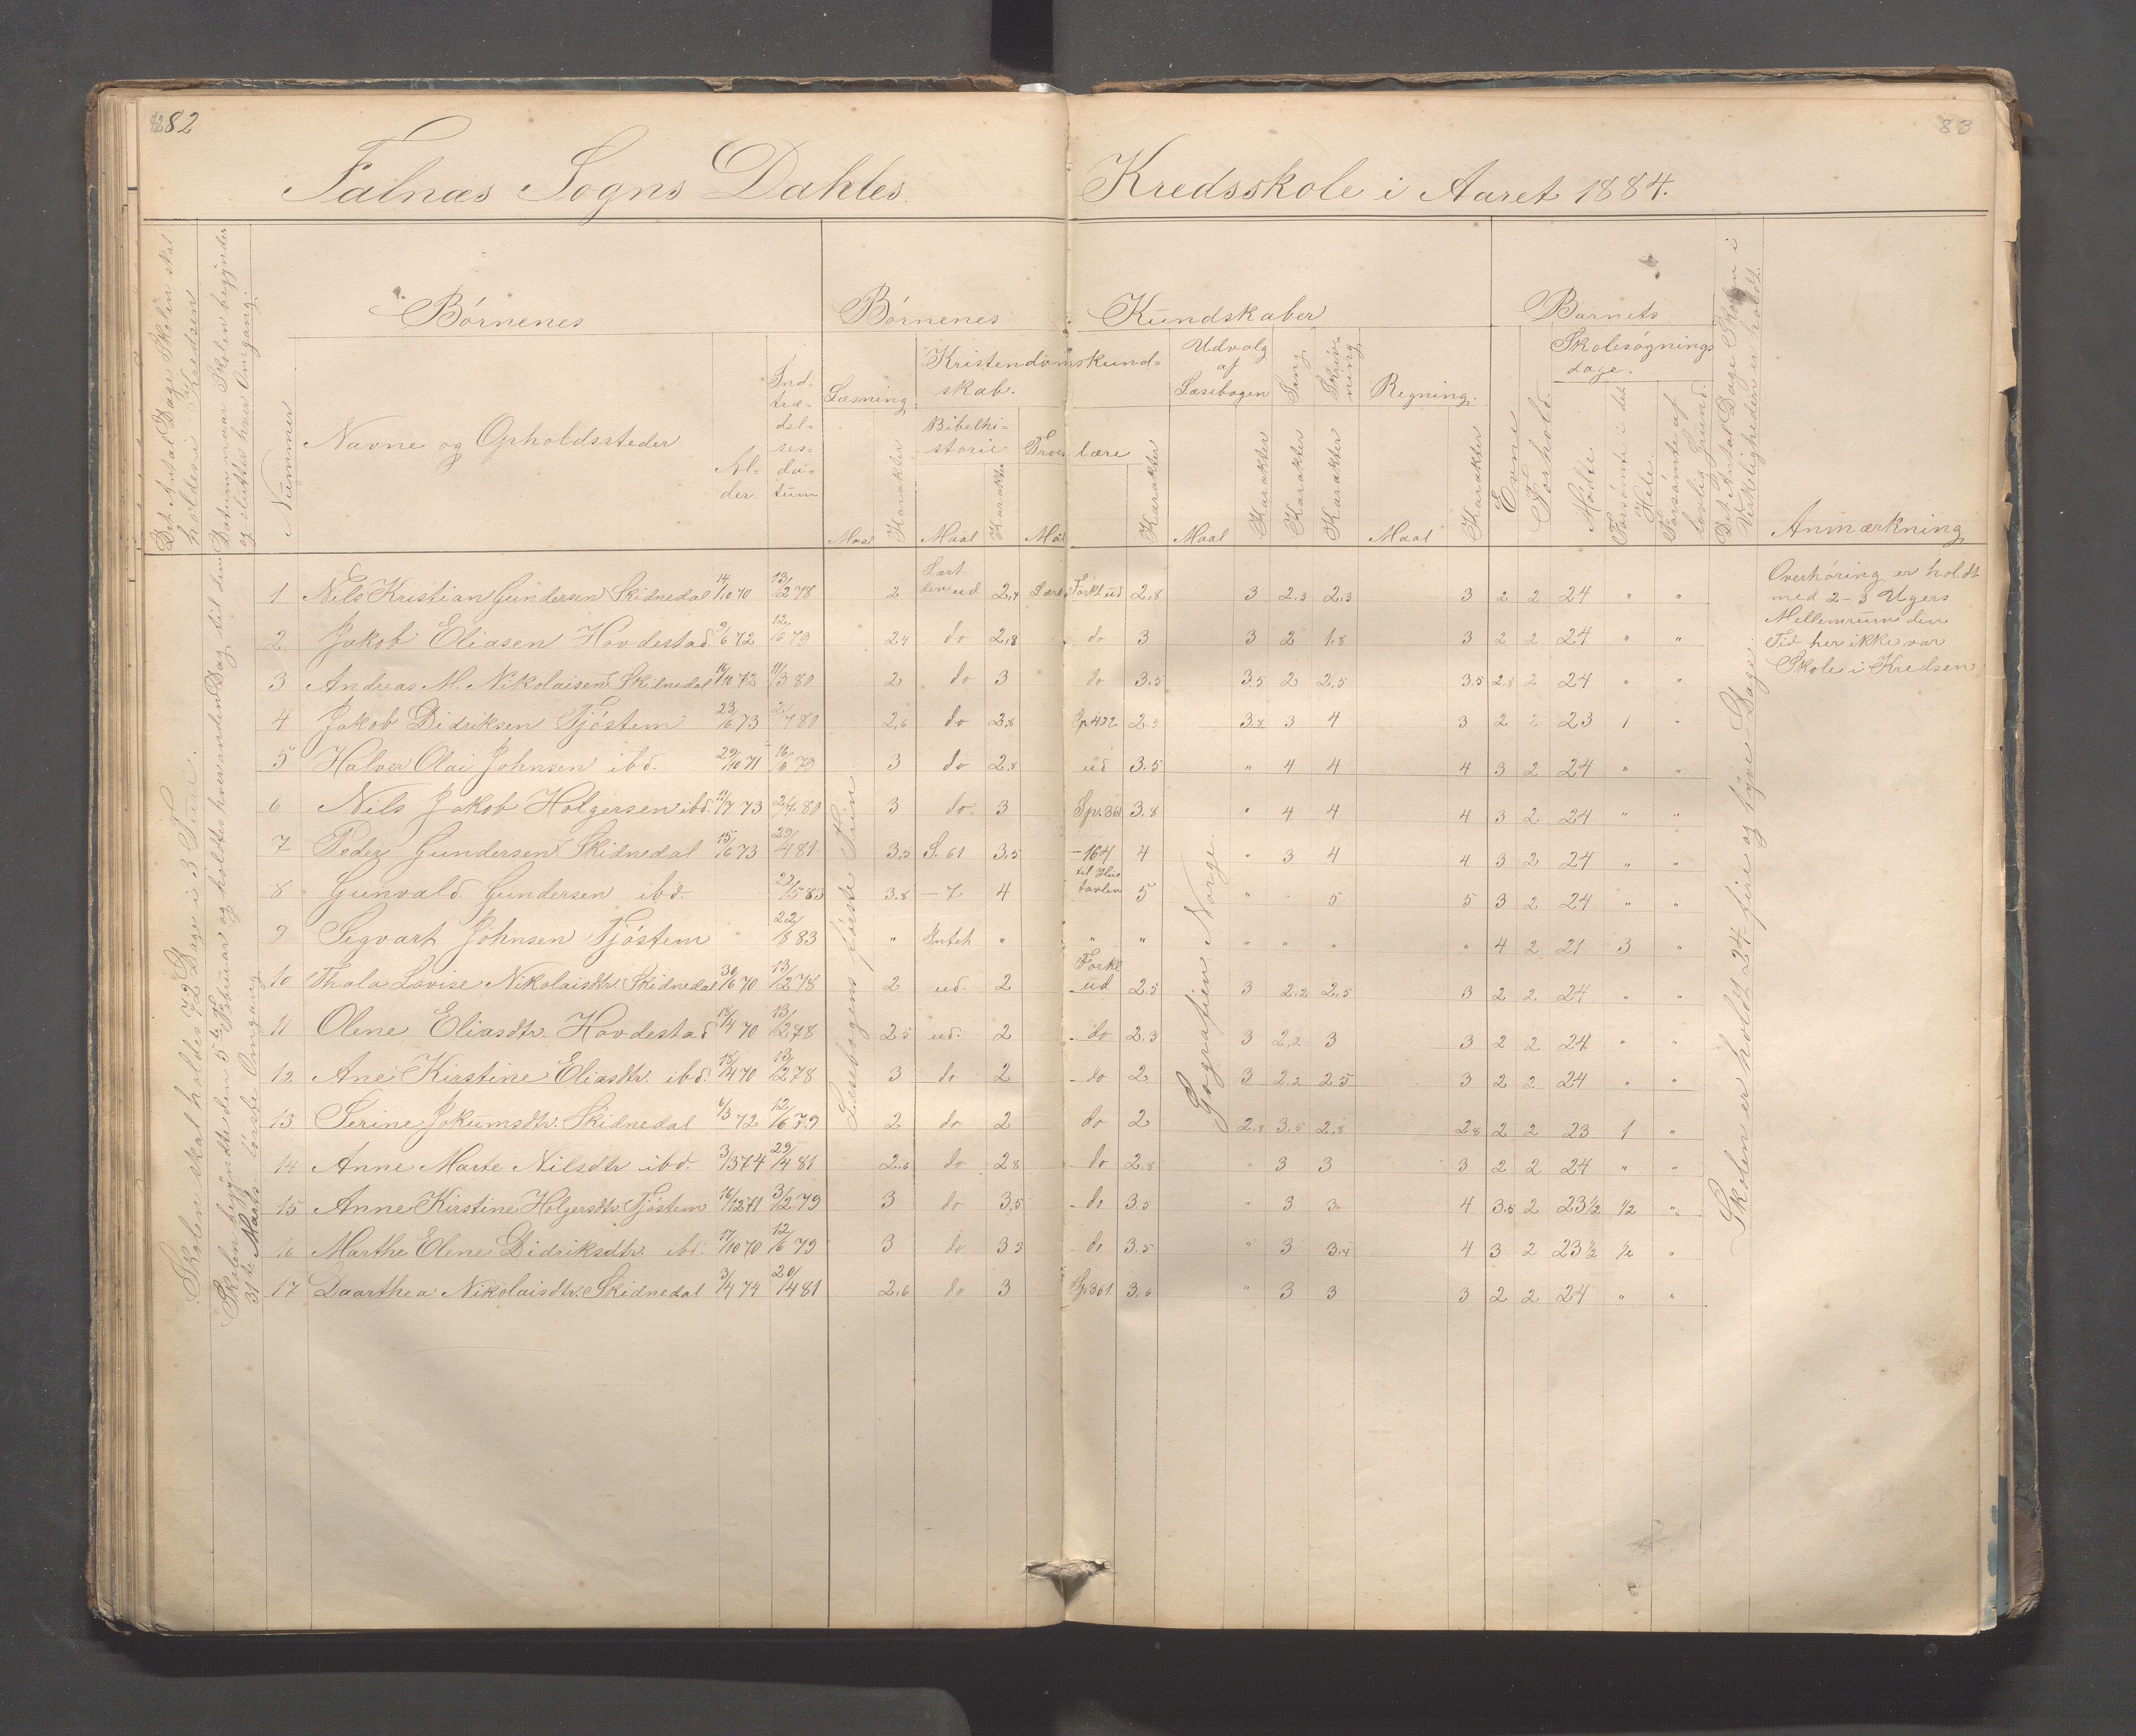 82
83
Falnæs Sogns Dahles Kredsskole i Aaret 1884.
Det Antal Dage Skolen skal holdes i Kredsen
Datum naar Skolen begynder og slutter hver Omgang.
Nummer
Børnenes
Navne og Opholdssteder
Al-
der.
Ind-
træ-
del-
ses-
da-
tum
Børnenes Kundskaber
Læsning
Maal
Karakter
Kristendomskund-
skab.
Bibelhi-
storie
Maal
Karakter
Troes lære
Karakter
Udvalg
af
Læsebogen
Maal
Karakter
Sang
Karakter
Skriv-
ning
Karakter
Regning.
Maal
Karakter
Barnets
Evne
Forhold
Skolesøgnings
dage.
Mødte
Forsømte i det Hele
Forsømte af lovlig Grund.
Det Antal Dage Skolen i Virkeligheden er holdt.
Anmærkning
Skolen skal holdes 72 Dage i 3 Tin.
Skolen begyndte den 5te Februar og holdtes hver anden Dag til den
31te Marts første Omgang
Læsebogens første Trin
Geografien Norge
Skolen er holdt 24 fire og tyve Dage
Overhøring er holdt
med 2-3 Ugers
Mellemrum den
Tid her ikke var
Skole i Kredsen
1 Nils Kristian Gundersen Skidnedal 14/10 70 13/2 78 2 Lært den ud 2,4 Lært Forkl ud 2,8 3 2,3 2,3 3 2 2 24 " "
2 Jakob Eliasen Hovdestad 9/6 72 12/6 79 2,4 do 2,8 do 3 3 2 1,8 3 2 2 24 " "
3 Andreas M. Nikolaisen Skidnedal 16/10 72 11/3 80 2 do 3 do 3,5 3,5 2 2,5 3,5 2,8 2 24 " "
4 Jakob Didriksen Tjøstem 23/6 73 2/7 80 2,6 do 2,8 Sp 432 2,9 3,8 3 4 3 2 2 23 1 "
5 Halver Olai Johnsen ibd. 29/10 71 16/6 79 3 do 2,8 ud 3,5 " 4 4 4 3 2 24 " "
6 Nils Jakob Holgersen ibd. 11/7 73 2/7 80 3 do 3 Sp. 361 3,8 " 4 4 4 3 2 24 " "
7 Peder Gundersen Skidnedal 15/6 73 29/4 81 3,5 S. 61 3,5 – 164 4 " 3 4 4 3 2 24 " "
8 Gunvald Gundersen ibd. 22/5 83 3,8 – 7 4 til Hus tavlen 5 " " 5 5 3 2 24 " "
9 Sigvart Johnsen Tjøstem 22/8 83 " Intet " " " " " " " 4 2 21 3 "
10 Thala Lovise Nikolaisdtr. Skidnedal 30/6 70 13/2 78 2 ud. 2 Forkl. ud 2,5 3 2,2 2,5 3 2 2 24 " "
11 Olene Eliasdtr. Hovdestad 15/4 70 13/2 78 2,5 ud. 2 do 2,3 3 2,2 3 3 2 2 24 " "
12 Ane Kirstine Eliasdtr. ibd. 15/4 70 13/2 78 3 do 2 do 2 3 2,2 2,5 3 2 2 24 " "
13 Serine Jokumsdtr. Skidnedal 6/3 72 12/6 79 2 do 2 do 2 2,8 3,5 2,8 2,8 2 2 23 1 "
14 Anne Marte Nilsdtr ibd. 3/3 74 29/4 81 2,6 do 2,8 do 2,8 " 3 3 3 2 2 24 " "
15 Anne Kirstine Holgersdtr. Tjøstem 16/12 71 3/2 79 3 do 3,5 do 3,5 " 3 3 4 3,5 2 23½ ½ "
16 Marthe Elene Didriksdtr. ibd. 17/10 70 12/6 79 3 do 3,5 do 3,5 " 3 3,4 4 3 2 23½ ½ "
17 Daarthea Nikolaisdtr. Skidnedal 3/4 74 20/4 81 2,6 do 3 Sp 361 3,6 " 3 3 3 2 2 24 " "